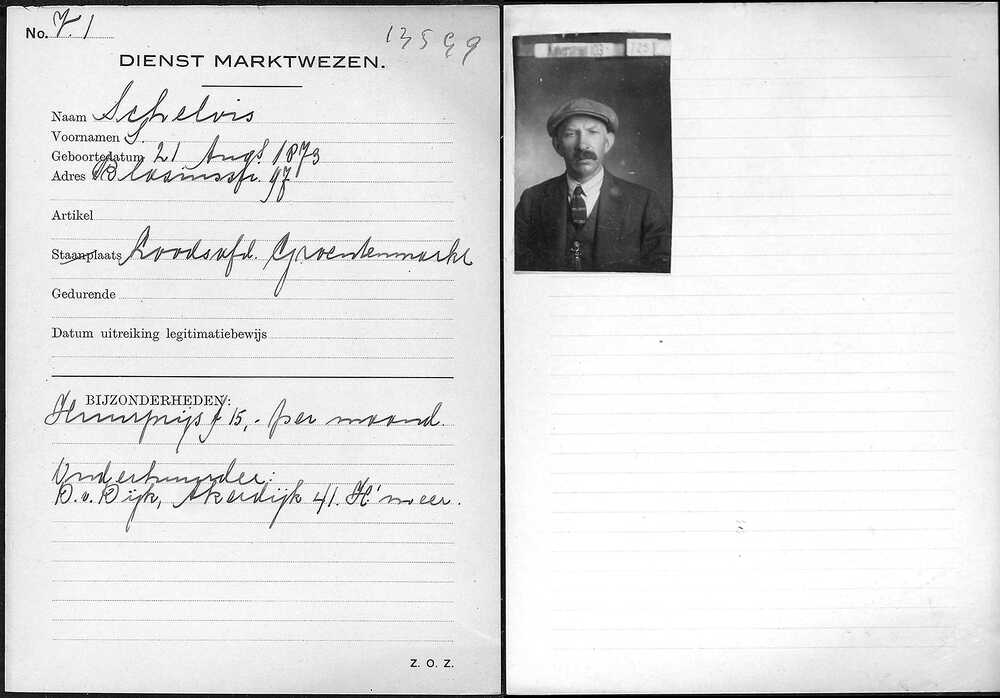 No. V. 1
13599
DIENST MARKTWEZEN.
Naam Schelvis
Voornamen S.
Geboortedatum 21 Augs. 1873
Adres Bloemstr. 97
Artikel
Staanplaats Loodsafd. Groentenmarkt
Gedurende
Datum uitreiking legitimatiebewijs
BIJZONDERHEDEN:
Huurprijs f 15,- per maand.
Onderhuurder:
D. v. Dijk, Akerdijk 41. H'meer.
Z. O. Z.
725